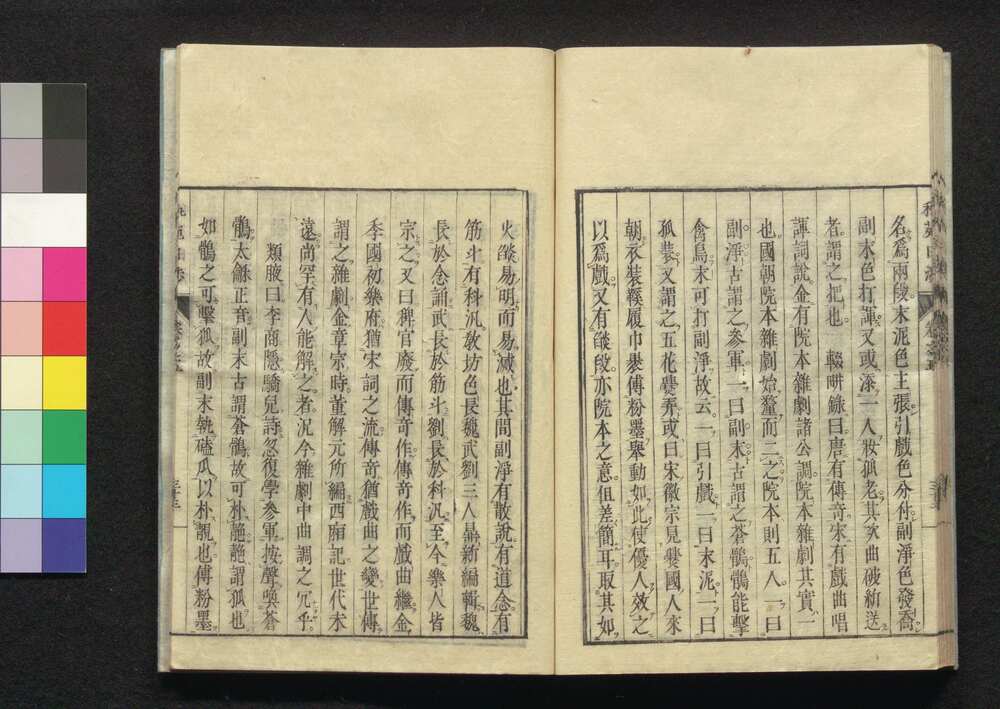 名爲兩段末泥色主張引戲色分付副淨色發喬
副末色打諢又或添一人妝孤老其吹曲破斷送
者謂之把也　輟畊錄曰唐有傳奇宋有戲曲唱
諢詞說金有院本雜劇諸公調院本雜劇其實一
也國朝院本雜劇始釐而二之院本則五人一曰
副淨古謂之參軍一曰副末古謂之蒼鶻鶻能擊
禽鳥末可打副淨故云一曰引戲一曰末泥一曰
孤裝又謂之五花爨弄或曰宋徽宗見爨國人來
朝衣裝鞵履巾裹傅粉墨舉動如此使優人效之
以爲戲又有燄段亦院本之意但差簡耳取其如
火燄易明而易滅也其間副淨有散說有道念有
筋斗有科汎敎坊色長魏武劉三人鼎新編輯魏
長於念誦武長於筋斗劉長於科汎至今樂人皆
宗之又曰稗官廢而傳奇作傳奇作而戲曲繼金
季國初樂府猶宋詞之流傳奇猶戲曲之變世傳
謂之雜劇金章宗時董解元所編西廂記世代未
遠尚罕有人能解之者況今雜劇中曲調之冗乎
類腋曰李商隱驕兒詩忽復學參軍按聲喚蒼
鶻太龢正音副末古謂蒼鶻故可朴靘靘謂狐也
如鶻之可擊狐故副末執磕瓜以朴靚也傅粉墨